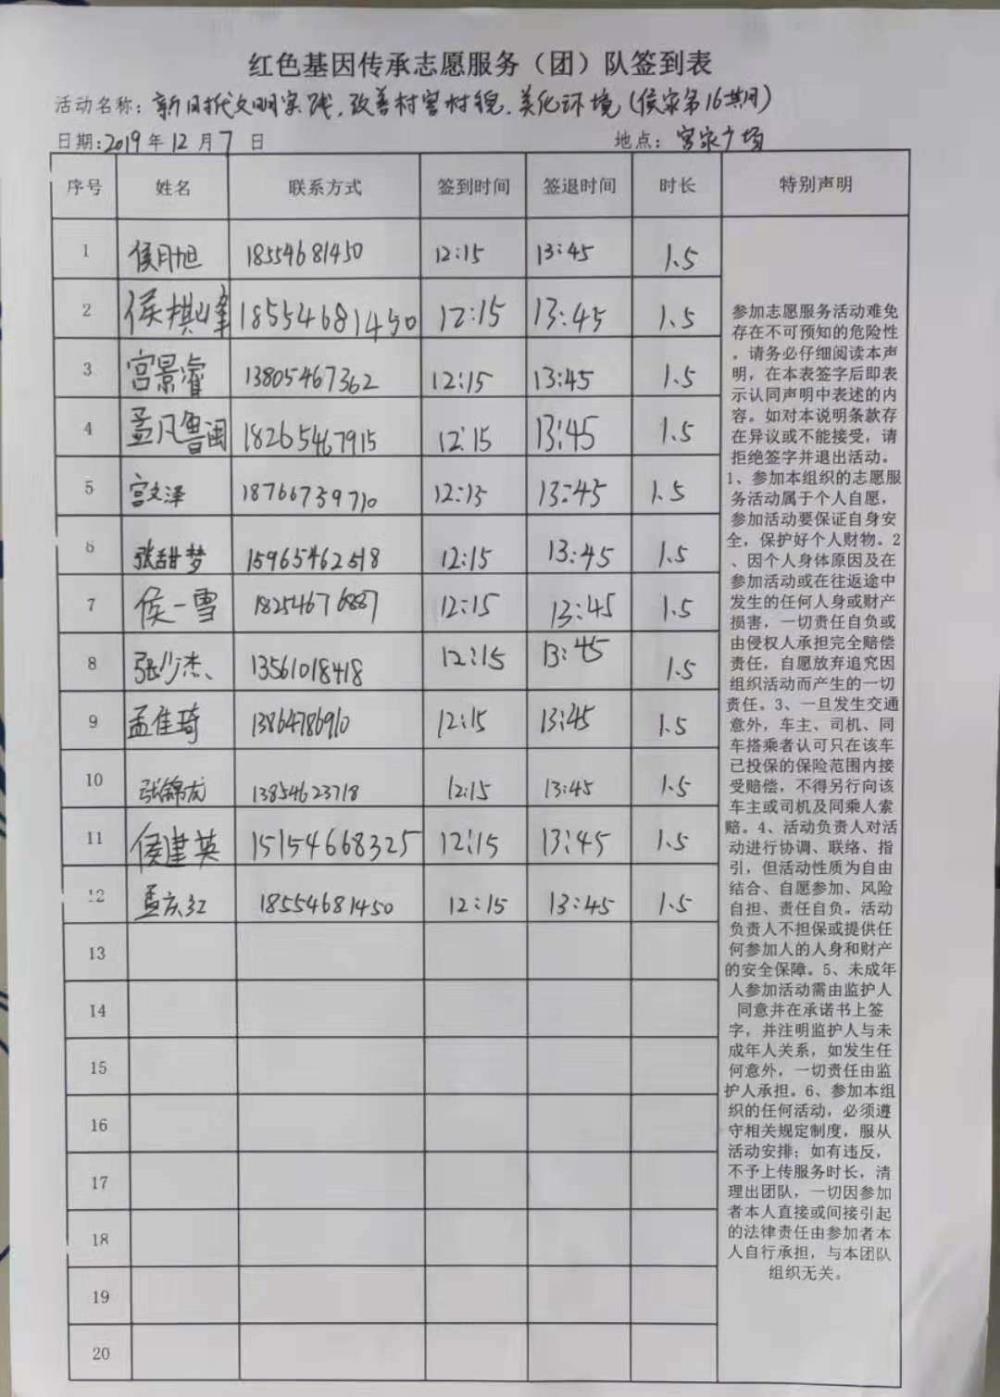 红色基因传承志愿服务（团）队签到表
活动名称：新时代文明实践，改善村容村貌，美化环境（侯家第16期）
日期：2019年12月7日 地点：宫家广场
序号 姓名 联系方式 签到时间 签退时间 时长 特别声明
1 侯月旭 18554681450 12:15 13:45 1.5
2 侯棋峰 18554681450 12:15 13:45 1.5
3 宫景睿 13805467362 12:15 13:45 1.5
4 孟凡鲁闽 18265467915 12:15 13:45 1.5
5 宫文泽 18766759710 12:15 13:45 1.5
6 张甜梦 15965462518 12:15 13:45 1.5
7 侯一雪 18254676887 12:15 13:45 1.5
8 张少杰 13561018418 12:15 13:45 1.5
9 孟佳琦 13864786910 12:15 13:45 1.5
10 张锦龙 13854623718 12:15 13:45 1.5
11 侯建英 15154668325 12:15 13:45 1.5
12 孟庆红 18554681450 12:15 13:45 1.5
13
14
15
16
17
18
19
20
参加志愿服务活动难免
存在不可预知的危险性
，请务必仔细阅读本声
明，在本表签字后即表
示认同声明中表述的内
容。如对本说明条款存
在异议或不能接受，请
拒绝签字并退出活动。
1、参加本组织的志愿服
务活动属于个人自愿，
参加活动要保证自身安
全，保护好个人财物。2
、因个人身体原因及在
参加活动或在往返途中
发生的任何人身或财产
损害，一切责任自负或
由侵权人承担完全赔偿
责任，自愿放弃追究因
组织活动而产生的一切
责任。3、一旦发生交通
意外，车主、司机、同
车搭乘者认可只在该车
已投保的保险范围内接
受赔偿，不得另行向该
车主或司机及同乘人索
赔。4、活动负责人对活
动进行协调、联络、指
引，但活动性质为自由
结合、自愿参加、风险
自担、责任自负。活动
负责人不担保或提供任
何参加人的人身和财产
的安全保障。5、未成年
人参加活动需由监护人
同意并在承诺书上签
字，并注明监护人与未
成年人关系，如发生任
何意外，一切责任由监
护人承担。6、参加本组
织的任何活动，必须遵
守相关规定制度，服从
活动安排；如有违反，
不予上传服务时长，清
理出团队，一切因参加
者本人直接或间接引起
的法律责任由参加者本
人自行承担，与本团队
组织无关。